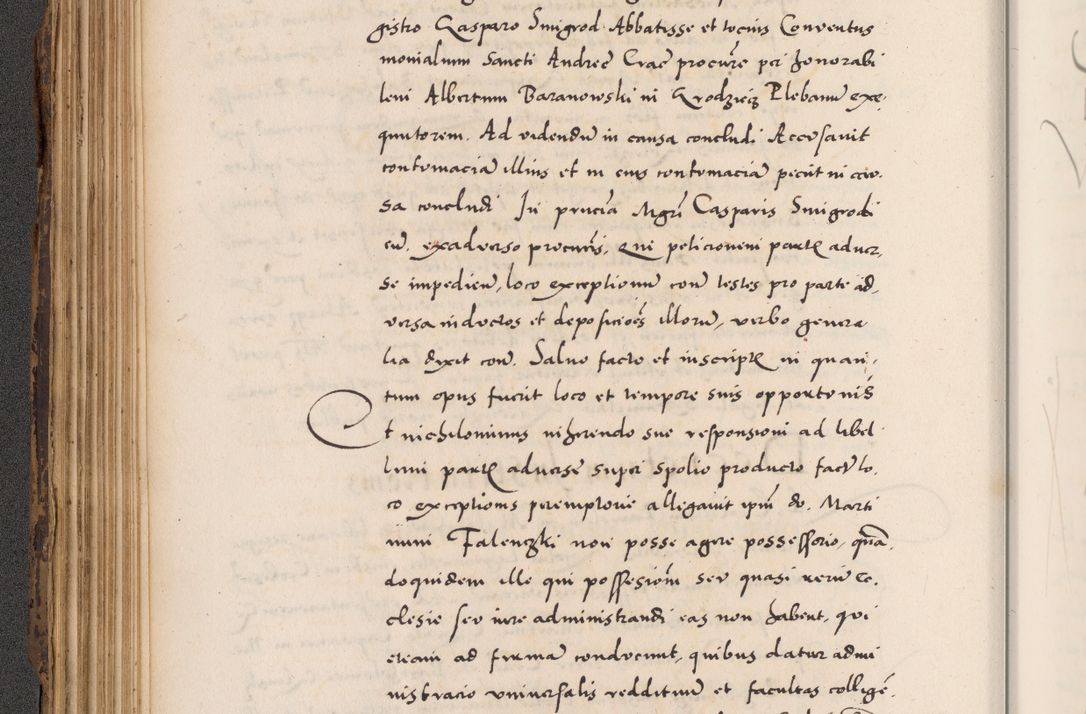 gistro Gasparo Smigrod Abbatisse et tocius Conventus
monialium Sancti Andree Crac procurē per honorabi
lem Albertum Baranowski in Grodziecz Plebanū exe-
quutorem. Ad videndū in causa concludi Accusavit
contumaciā illius et in eius contumaciā peciit in cau-
sa concludi In pñcia Mgrī Casparis Smigrodi
cū. exadverso procuris, Qui peticionem partꝭ adver,
se impedieñ, loco exceptionum coñ testes pro parte ad,
versa inductos et deposicioēs illorū, verbo genera
lia dixit coñ. Salvo facto et inscriptꝭ in quan,
tum opus fuerit loco et tempore suis opportunis
Et nichilominus inherendo sue responsioni ad libel
lum partꝭ adverse super spolio producto fact' lo,
co exceptionis peremptorie allegavit ipm̄ do. Marti
num Falenczki non posse agere possessorio, quā,
doquidem ille qui possesionem seu quasi rerū Ec,
clesie seu iure administrandi eas non habent, qui
etiam ad firmā conducunt, quibus datur admi
nistracio universalis reddituum et facultas colligē,